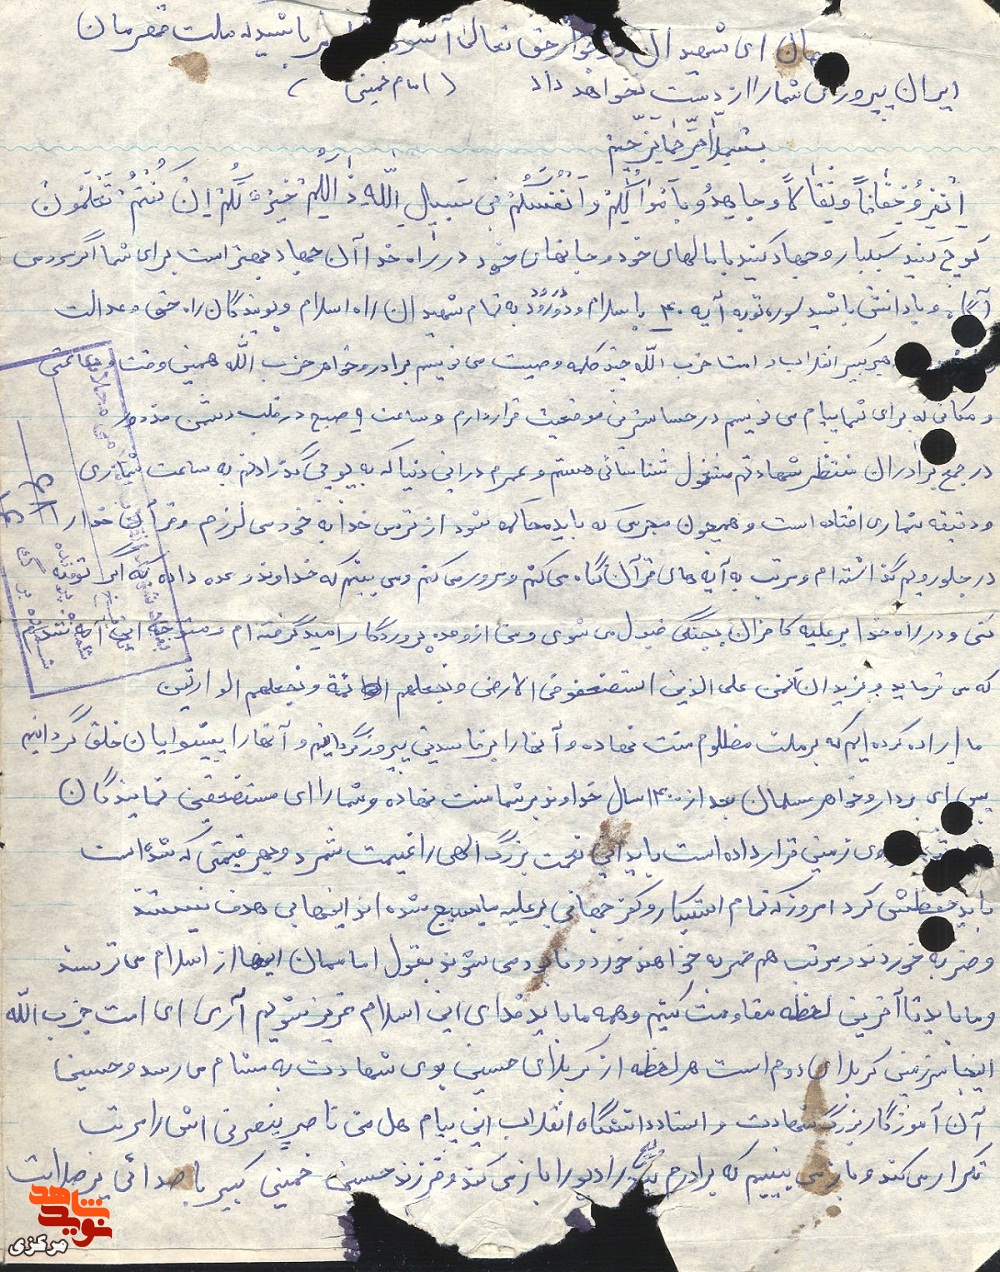 هان ای شهیدان در جوار حق تعالی آسوده خاطر باشید که ملت قهرمان
ایران پیروزی شما را از دست نخواهد داد (امام خمینی)
بسم الله الرحمن الرحیم
انْفِرُو خِفٰافاً وَ ثِقٰالاً وجاهِدُو بِاَمْوٰالِکُمْ وَاَنْفُسَکُمْ فی سَبیلِ اللّٰهِ ذٰالِکُمْ خَیْرٌ لَکُمْ اِنْ کُنْتُمْ تَعْلَمُونَ
کوچ کنید سبکبار و جهاد کنید با مالهای خود و جانهای خود در راه خدا آن جهاد بهتر است برای شما اگر مردمی
آگاه و با دانش باشید سوره توبه آیه ۴۰ با سلام و درود به تمام شهیدان راه اسلام و پویندگان راه حق و عدالت
رهبر کبیر انقلاب و امت حزب الله چند کلمه وصیت می نویسم برادر و خواهر حزب الله همینی وقت و ساعتی
و مکانی که برای شما پیام می نویسم در حساسترین موقعیت قرار دارم و ساعت ۹ صبح در قلب دشمن
در جمع برادران منتظر شهادتم مشغول شناسائی هستم و عمرم در این دنیا که به پوچی گذراندم به ساعت شماری
و دقیقه شماری افتاده است و همچون مجرمی که باید محاکمه شود از ترس خدا به خود می لرزم و قرآن خدا را
در جلو رویم گذاشته ام و مرتب به آیه های قرآن نگاه می کنم و مرور می کنم و می بینم که خداوند وعده داده که اگر توبه
کنی و در راه خدا بر علیه کافران بجنگی قبول می شوی و من از وعده پروردگار امید گرفته ام و متوجه این آیه شدم
که می فرماید و نرید ان نمن علی الذین استضعفو فی الارض و نجعلهم ائمة و نجعلهم الوارثین
ما اراده کرده ایم که بر ملت مظلوم منت نهاده و آنها را بر فاسدین پیروز گردانیم و آنها را پیشوایان خلق گردانیم
پس ای برادر و خواهر مسلمان بعد از ۱۴۰۰ سال خداوند بر شما منت نهاده و شما را ای مستضعفین نمایندگان
روی زمین قرار داده است باید این نعمت بزرگ الهی را غنیمت شمرد و بهر قیمتی که شده است
باید حفظش کرد امروز که تمام استکبار و کفر جهانی بر علیه ما بسیج شده اند اینها بی هدف نیستند
و ضربه خوردند و مرتب هم ضربه خواهند خورد و نابود می شوند بقول اماممان اینها از اسلام می ترسند
و ما باید تا آخرین لحظه مقاومت کنیم و همه ما باید فدای این اسلام عزیز شویم آری ای امت حزب الله
اینجا سرزمین کربلای دوم است هر لحظه از کربلای حسین بوی شهادت به مشام می رسد و حسین
آن آموزگار بزرگ شهادت و استاد دانشگاه انقلاب این پیام هل من ناصر ینصرنی اش را مرتب
تکرار می کند و باز می بینیم که برادرم را بازمی کند و فرزند حسین خمینی کبیر با صدائی پر صلابت
نوید شاهد
مرکزی